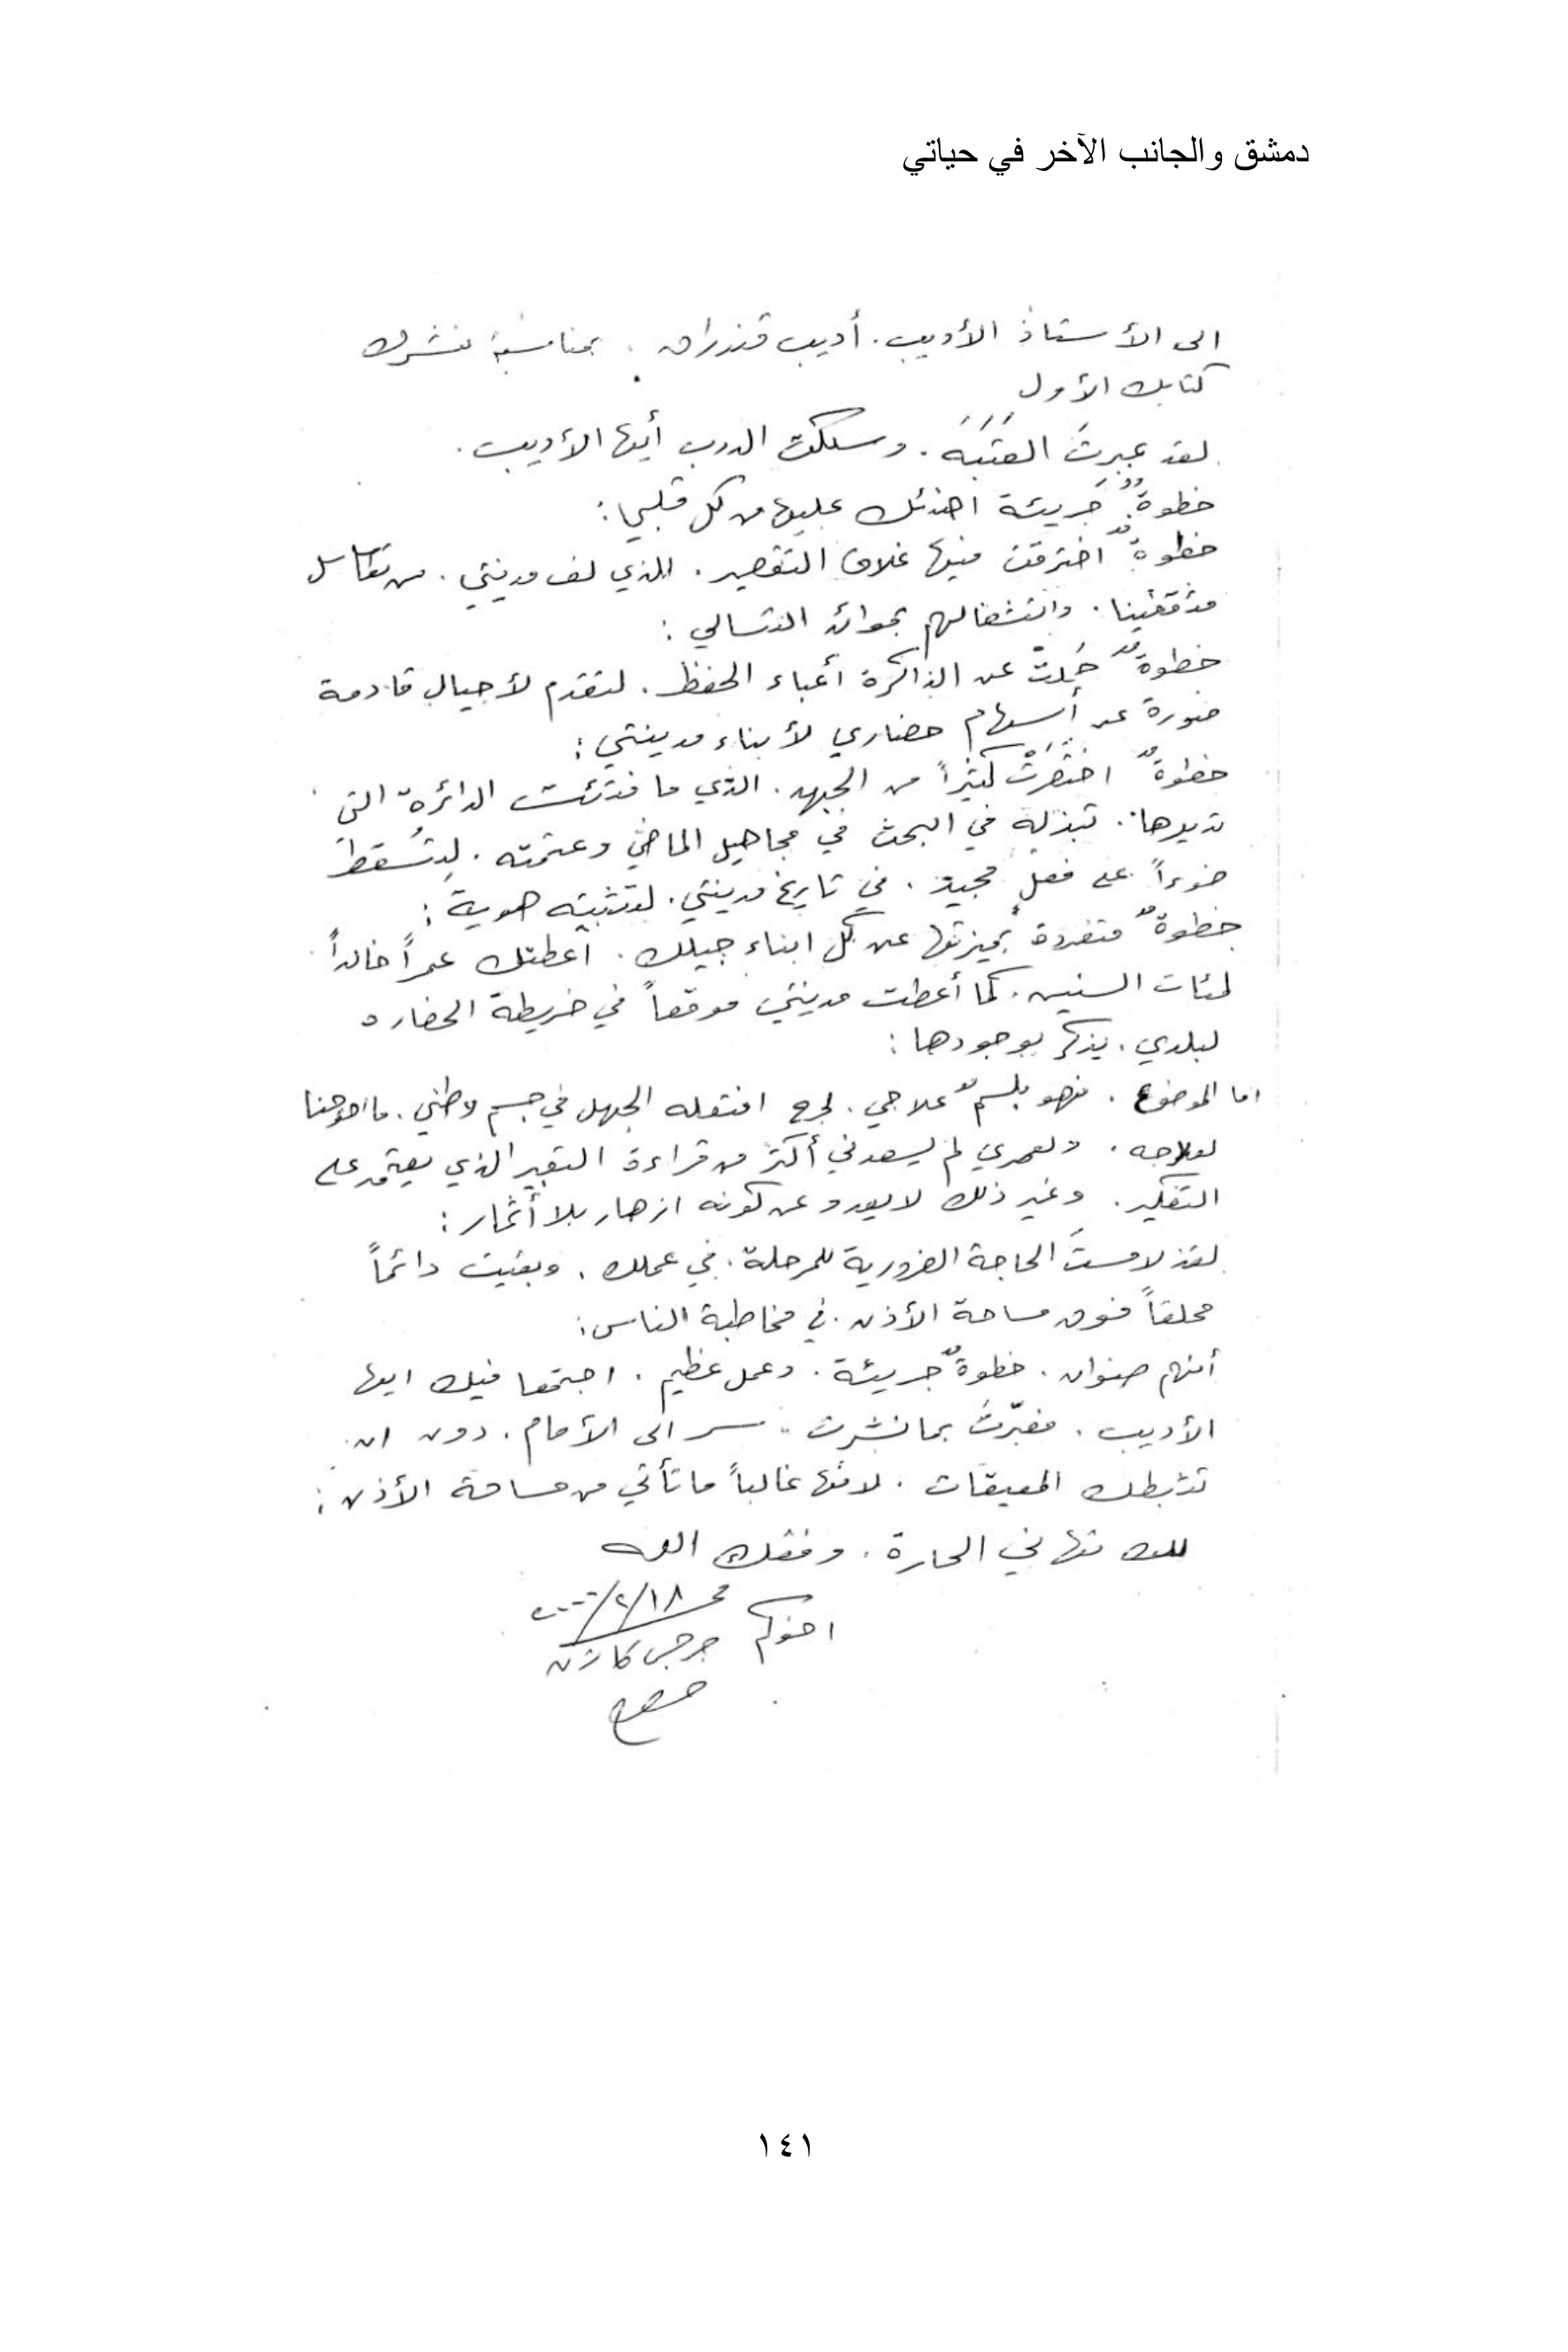 دمشق والجانب الآخر في حياتي
الى الأستاذ الأديب. أديب قندراق . بمناسبة نشرك
كتابك الأول
لقد عبرتَ العَتَبَة . وسلكتَ الدرب أيها الأديب .
خطوةٌ جَريئة اهنئك عليها من كل قلبي :
خطوةٌ اخترقت فيها غلاف التقصير . الذي لف مدينتي . من تقاسل
مثقفينا . وانشغالهم بموائد التسالي :
خطوةٌ حَملتْ عن الذاكرة أعباء الحفظ . لتقدم لأجيال قادمة
صورة عن أسهام حضاري لأبناء مدينتي :
خطوةٌ اختَصَرَتْ كثيراً من الجهد . الذي ما فتئت الدائرة التي
تديرها . تبذله في البحث في مجاهيل الماضي وعتمته . لتُسقط
ضوءاً على فعلٍ مجيد . في تاريخ مدينتي . لتثبيته هوية :
خطوةٌ متفردة بميزتها عن كل ابناء جيلك . أعطتك عمراً خالداً
لمئات السنين . كما أعطت مدينتي موقعاً في خريطة الحضاره
لبلدي . يذكر بوجودها :
اما الموضوع . فهو بلسمٌ علاجي . لجرح افتعله الجهل في جسم وطني . ما احوجنا
لعلاجه . ولعمري لم يسعدني أكثر من قراءة التعبير الذي يعتمد على
التفكير . وغير ذلك لا يعدو عن كونه ازهار بلا أثمار :
لقد لامستَ الحاجة الضرورية للمرحلة . في عملك . وبقيت دائماً
محلقاً فوق مساحة الأذن . في مخاطبة الناس :
أنهم صنوان . خطوةٌ جريئة . وعمل عظيم . اجتمعا فيك ايها
الأديب . فعبّرتَ بما نشرت . سر الى الأمام . دون ان
تثبطك المعيقات . لأنها غالباً ما تأتي من مساحة الأذن :
لك تهاني الحارة . وفقك الله
في ١٨/٢/٢٠٠٠
اخوكم جرجس كازن
١٤١